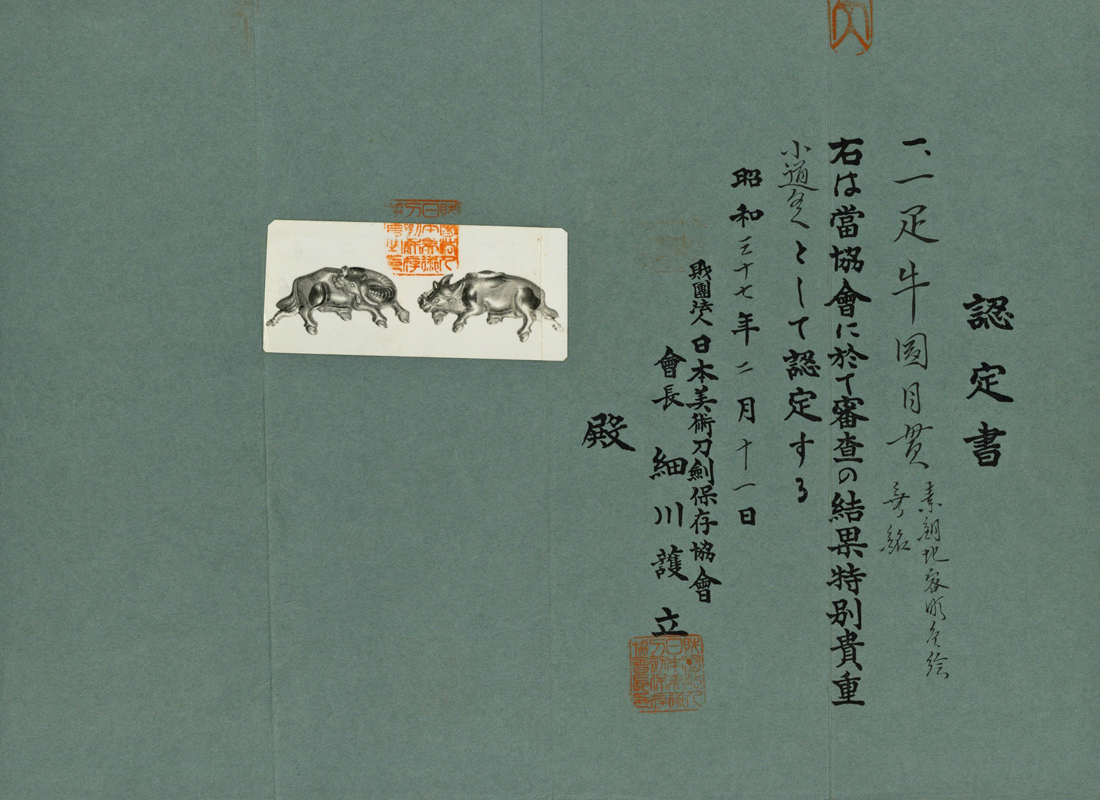 認定書
一、一疋牛圖目貫
素銅地容彫色絵
無銘
右は當協會に於て審査の結果特別貴重
小道具として認定する
昭和三十七年二月十一日
財團法人日本美術刀劍保存協會
會長 細川護立
殿